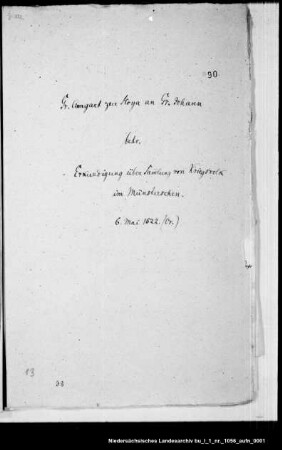 30.
Gr. Armgard zur Hoya an Gr. Johann
betr.
Erkundigung über Samlung von Kriegsvolk
im Münsterschen.
6. Mai 1522. (Or.)
13
Niedersächsisches Landesarchiv bu_l_1_nr._1056_aufn_0001